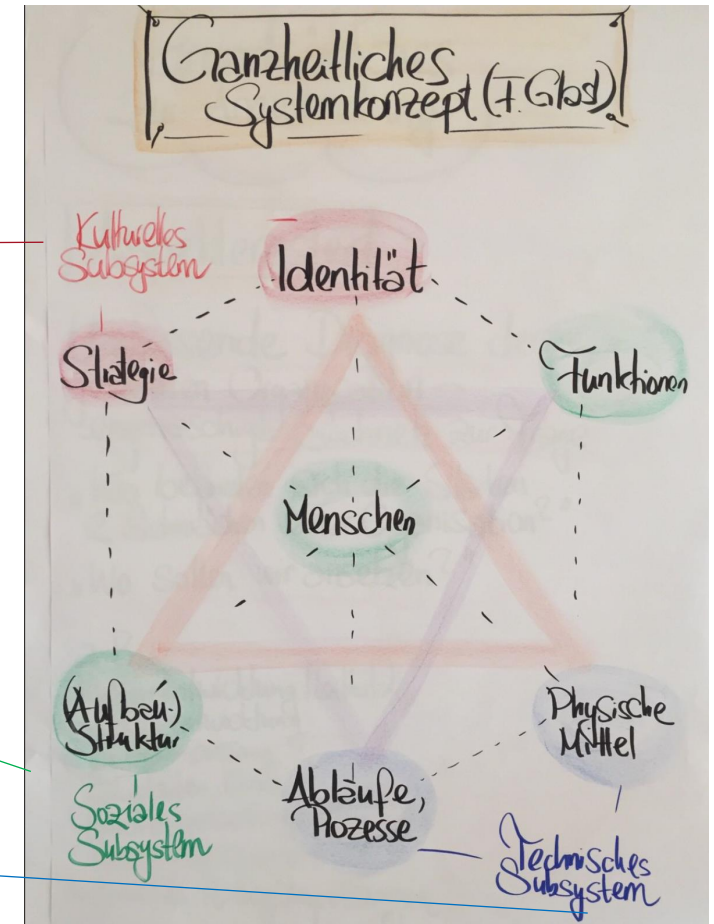 Ganzheitliches
Systemkonzept (F. Glasl)
Kulturelles
Subsystem
Identität
Strategie
Funktionen
Menschen
(Aufbau-)
Struktur
Physische
Mittel
Abläufe,
Prozesse
Soziales
Subsystem
Technisches
Subsystem